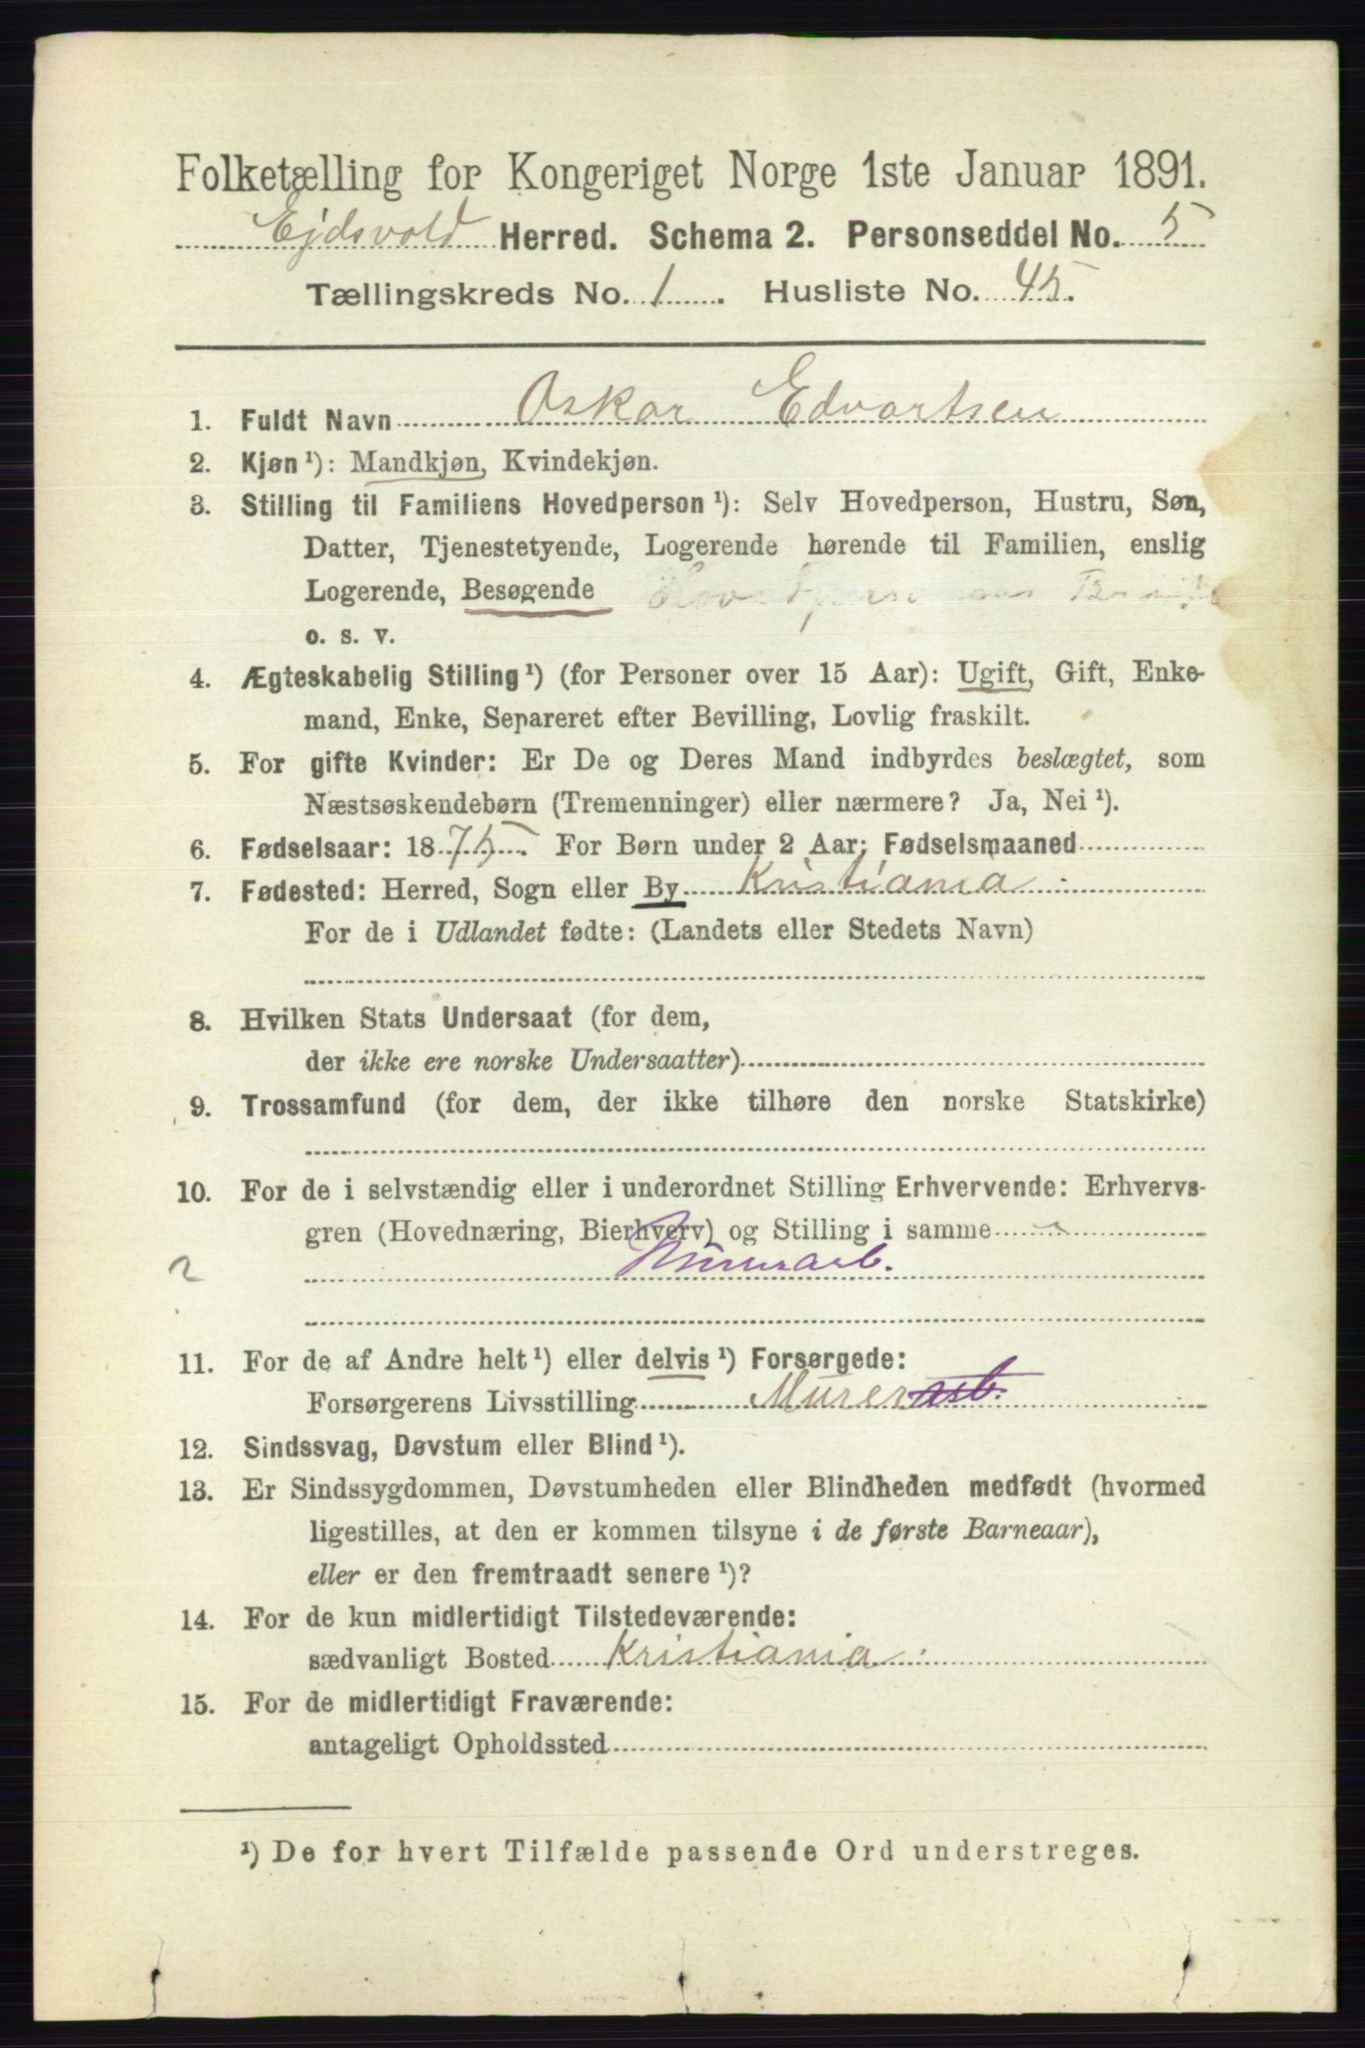 Folketælling for Kongeriget Norge 1ste Januar 1891.
Ejdsvold Herred. Schema 2. Personseddel No. 5
Tællingskreds No. 1. Husliste No. 45.
1. Fuldt Navn Oskar Edvartsen
2. Kjøn ¹): Mandkjøn, Kvindekjøn.
3. Stilling til Familiens Hovedperson ¹): Selv Hovedperson, Hustru, Søn,
Datter, Tjenestetyende, Logerende hørende til Familien, enslig
Logerende, Besøgende
o. s. v.
4. Ægteskabelig Stilling ¹) (for Personer over 15 Aar): Ugift, Gift, Enke-
mand, Enke, Separeret efter Bevilling, Lovlig fraskilt.
5. For gifte Kvinder: Er De og Deres Mand indbyrdes beslægtet, som
Næstsøskendebørn (Tremenninger) eller nærmere? Ja, Nei ¹).
6. Fødselsaar: 1875. For Børn under 2 Aar: Fødselsmaaned
7. Fødested: Herred, Sogn eller By Kristiania
For de i Udlandet fødte: (Landets eller Stedets Navn)
8. Hvilken Stats Undersaat (for dem,
der ikke ere norske Undersaatter)
9. Trossamfund (for dem, der ikke tilhøre den norske Statskirke)
10. For de i selvstændig eller i underordnet Stilling Erhvervende: Erhvervs-
gren (Hovednæring, Bierhverv) og Stilling i samme
2 Murerarb.
11. For de af Andre helt ¹) eller delvis ¹) Forsørgede:
Forsørgerens Livsstilling Murerarb.
12. Sindssvag, Døvstum eller Blind ¹).
13. Er Sindssygdommen, Døvstumheden eller Blindheden medfødt (hvormed
ligestilles, at den er kommen tilsyne i de første Barneaar),
eller er den fremtraadt senere ¹)?
14. For de kun midlertidigt Tilstedeværende:
sædvanligt Bosted Kristiania
15. For de midlertidigt Fraværende:
antageligt Opholdssted
¹) De for hvert Tilfælde passende Ord understreges.